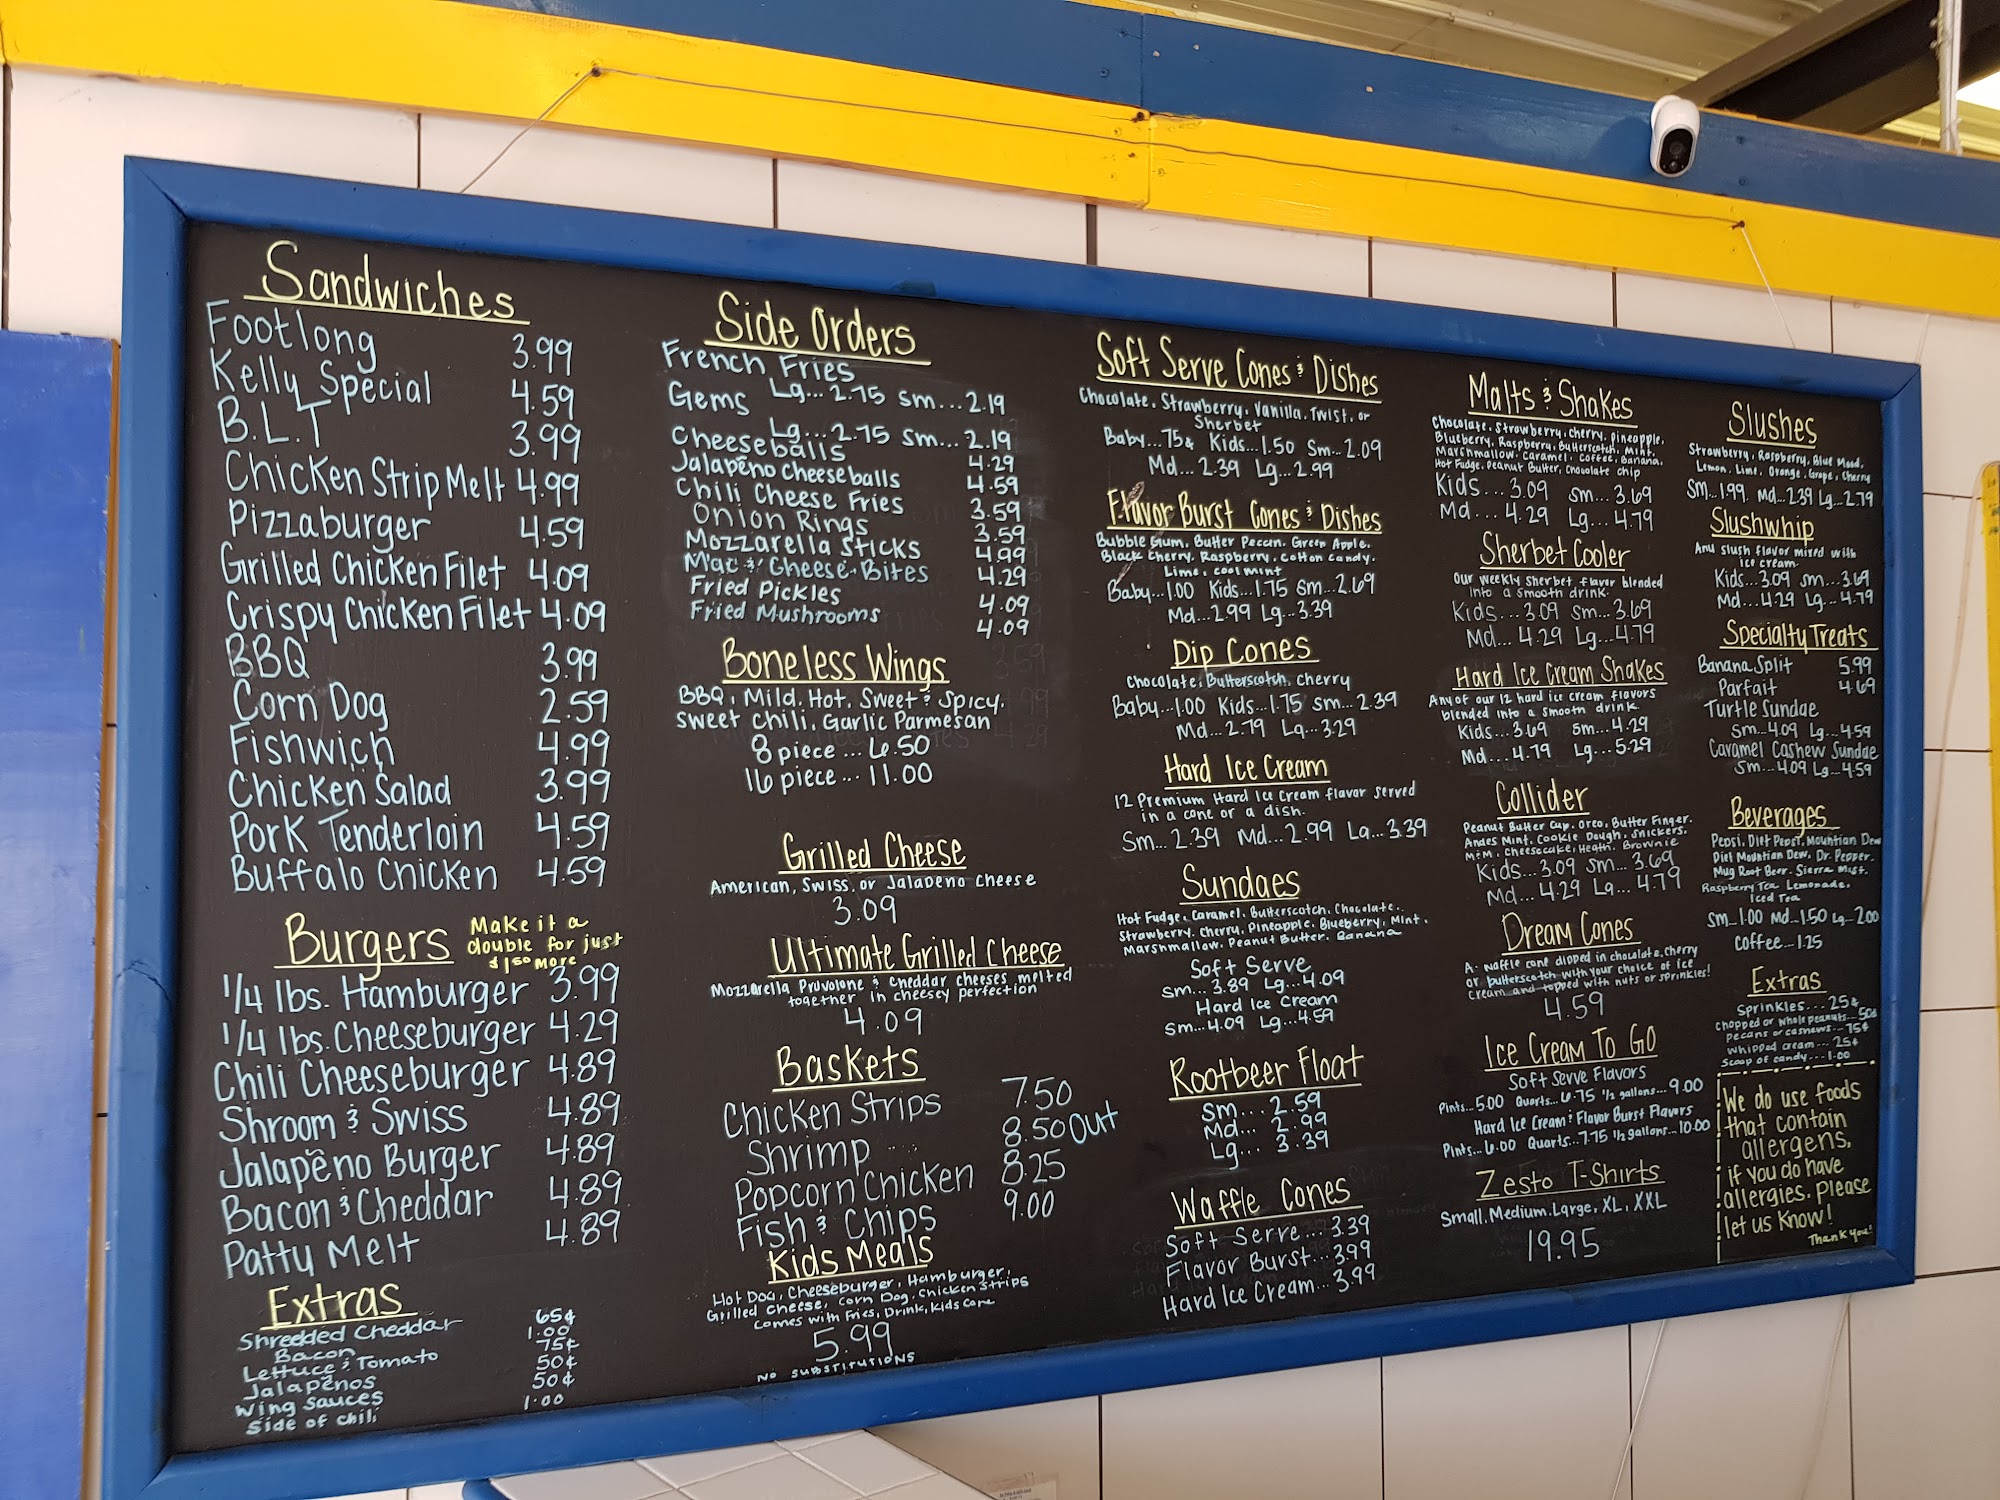 Sandwiches
Footlong 3.99
Kelly Special 4.59
B.L.T 3.99
Chicken Strip Melt 4.99
Pizzaburger 4.59
Grilled Chicken Filet 4.09
Crispy Chicken Filet 4.09
BBQ 3.99
Corn Dog 2.59
Fishwich 4.99
Chicken Salad 3.99
Pork Tenderloin 4.59
Buffalo Chicken 4.59
Burgers
Make it a
double for just
$1.50 more
1/4 lbs. Hamburger 3.99
1/4 lbs. Cheeseburger 4.29
Chili Cheeseburger 4.89
Shroom & Swiss 4.89
Jalapeño Burger 4.89
Bacon & Cheddar 4.89
Patty Melt 4.89
Extras
Shredded Cheddar 65¢
Bacon 1.00
Lettuce & Tomato 75¢
Jalapeños 50¢
Wing Sauces 50¢
Side of Chili 1.00
Side Orders
French Fries
Lg... 2.75 Sm... 2.19
Gems
Lg... 2.75 Sm... 2.19
Cheeseballs 4.29
Jalapeño Cheeseballs 4.59
Chili Cheese Fries 3.59
Onion Rings 3.59
Mozzarella Sticks 4.99
Mac & Cheese Bites 4.29
Fried Pickles 4.09
Fried Mushrooms 4.09
Boneless Wings
BBQ, Mild, Hot, Sweet & Spicy,
Sweet Chili, Garlic Parmesan
8 piece... 6.50
16 piece... 11.00
Grilled Cheese
American, Swiss, or Jalapeno Cheese
3.09
Ultimate Grilled Cheese
Mozzarella Pruvolone & Cheddar cheeses melted
together in cheesey perfection
4.09
Baskets
Chicken Strips 7.50
Shrimp 8.50 Out
Popcorn Chicken 8.25
Fish & Chips 9.00
Kids Meals
Hot Dog, Cheeseburger, Hamburger,
Grilled Cheese, Corn Dog, Chicken Strips
Comes with Fries, Drink, Kids Cone
5.99
No Substitutions
Soft Serve Cones & Dishes
Chocolate, Strawberry, Vanilla, Twist, or
Sherbet
Baby...75¢ Kids...1.50 Sm...2.09
Md...2.39 Lg...2.99
Flavor Burst Cones & Dishes
Bubble Gum, Butter Pecan, Green Apple,
Black Cherry, Raspberry, Cotton Candy,
Lime, Cool mint
Baby...1.00 Kids...1.75 Sm...2.69
Md...2.99 Lg...3.39
Dip Cones
Chocolate, Butterscotch, Cherry
Baby...1.00 Kids...1.75 Sm...2.39
Md...2.79 Lg...3.29
Hard Ice Cream
12 Premium Hard Ice Cream flavor served
in a cone or a dish.
Sm...2.39 Md...2.99 La...3.39
Sundaes
Hot Fudge, Caramel, Butterscotch, Chocolate,
Strawberry, Cherry, Pineapple, Blueberry, Mint,
Marshmallow, Peanut Butter, Banana
Soft Serve
Sm...3.89 Lg...4.09
Hard Ice Cream
Sm...4.09 Lg...4.59
Rootbeer Float
Sm... 2.59
Md... 2.99
Lg... 3.39
Waffle Cones
Soft Serve... 3.39
Flavor Burst... 3.99
Hard Ice Cream... 3.99
Malts & Shakes
Chocolate, Strawberry, Cherry, Pineapple,
Blueberry, Raspberry, Butterscotch, Mint,
Marshmallow, Caramel, Coffee, Banana,
Hot Fudge, Peanut Butter, Chocolate Chip
Kids... 3.09 Sm... 3.69
Md... 4.29 Lg... 4.79
Sherbet Cooler
Our weekly Sherbet flavor blended
into a smooth drink.
Kids... 3.09 Sm... 3.69
Md... 4.29 Lg... 4.79
Hard Ice Cream Shakes
Any of our 12 hard ice cream flavors
blended into a smooth drink
Kids... 3.69 Sm... 4.29
Md... 4.79 Lg... 5.29
Collider
Peanut Butter Cup, Oreo, Butter Finger,
Andes Mint, Cookie Dough, Snickers,
M&M, Cheesecake, Heath, Brownie
Kids... 3.09 Sm... 3.69
Md... 4.29 La... 4.79
Dream Cones
A waffle cone dipped in chocolate, cherry
or butterscotch with your choice of ice
cream and topped with nuts or sprinkles!
4.59
Ice Cream To Go
Soft Serve Flavors
Pints...5.00 Quarts...6.75 1/2 gallons...9.00
Hard Ice Cream & Flavor Burst Flavors
Pints...6.00 Quarts...7.75 1/2 gallons...10.00
Zesto T-Shirts
Small, Medium, Large, XL, XXL
19.95
Slushes
Strawberry, Raspberry, Blue Mood,
Lemon, Lime, Orange, Grape, Cherry
Sm...1.99 Md...2.39 Lg...2.79
Slushwhip
Any slush flavor mixed with
ice cream.
Kids...3.09 Sm...3.69
Md...4.29 Lg...4.79
Specialty Treats
Banana Split 5.99
Parfait 4.69
Turtle Sundae
Sm...4.09 Lg...4.59
Caramel Cashew Sundae
Sm...4.09 Lg...4.59
Beverages
Pepsi, Diet Pepsi, Mountian Dew
Diet Mountian Dew, Dr. Pepper,
Mug Root Beer, Sierra Mist,
Raspberry Tea, Lemonade,
Iced Tea
Sm...1.00 Md...1.50 Lg...2.00
Coffee...1.25
Extras
Sprinkles... 25¢
Chopped or whole peanuts... 50¢
Pecans or cashews... 75¢
Whipped Cream... 25¢
Scoop of candy... 1.00
We do use foods
that contain
allergens,
if you do have
allergies, please
let us know!
Thank you!